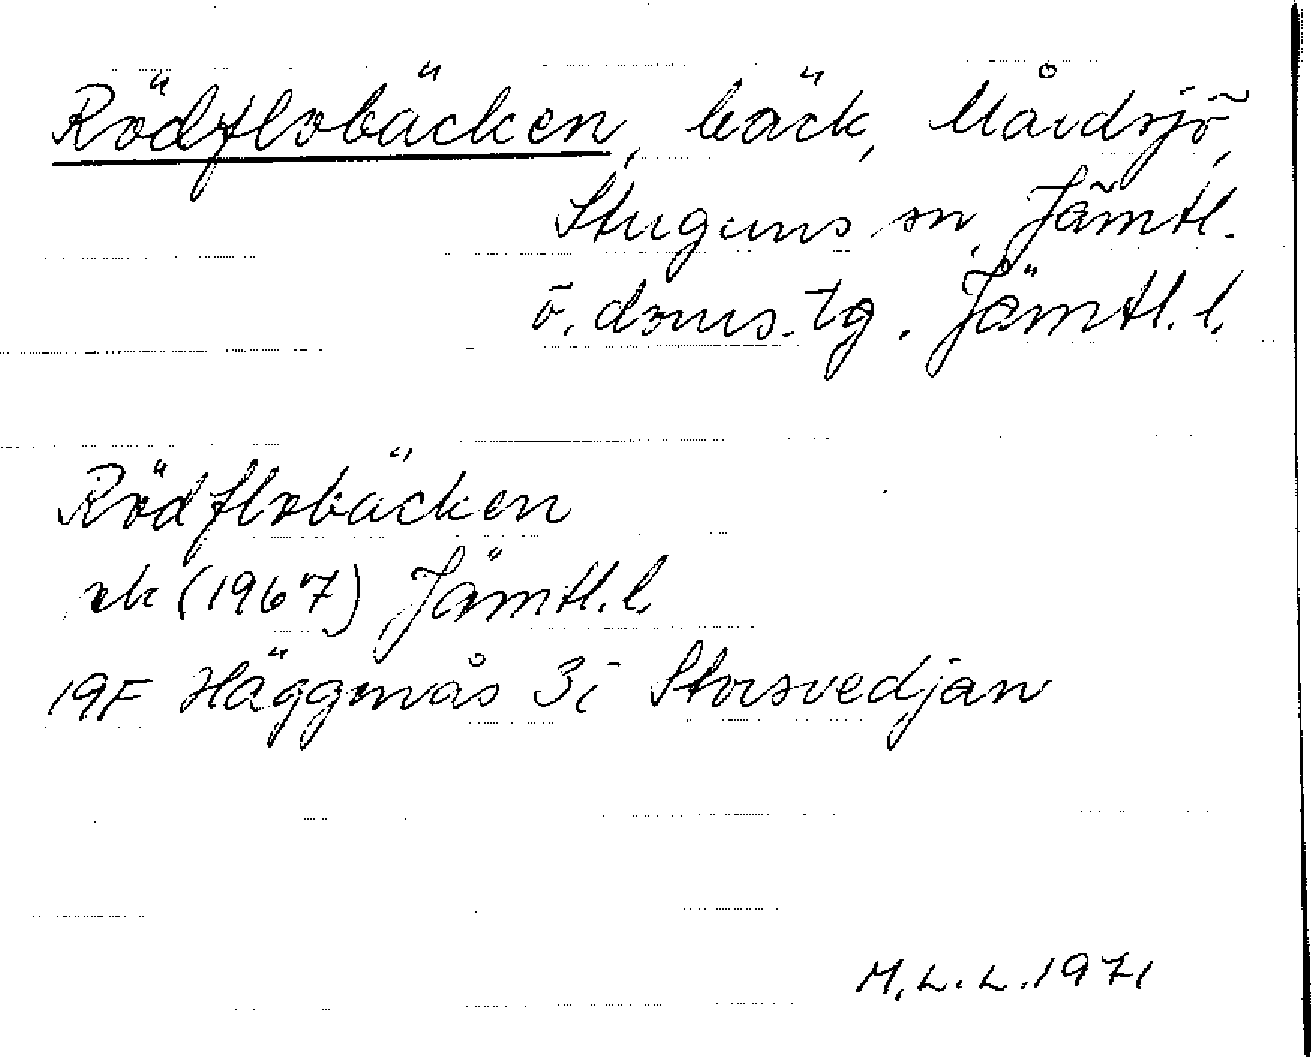 Rödflobäcken, bäck, Mårdsjö,
Stuguns sn, Jämtl.
ö. doms. tg. Jämtl. l.
Rödflobäcken
rk (1967) Jämtl. l.
19F Häggenås 3i Storsvedjan
M.L.L. 1971